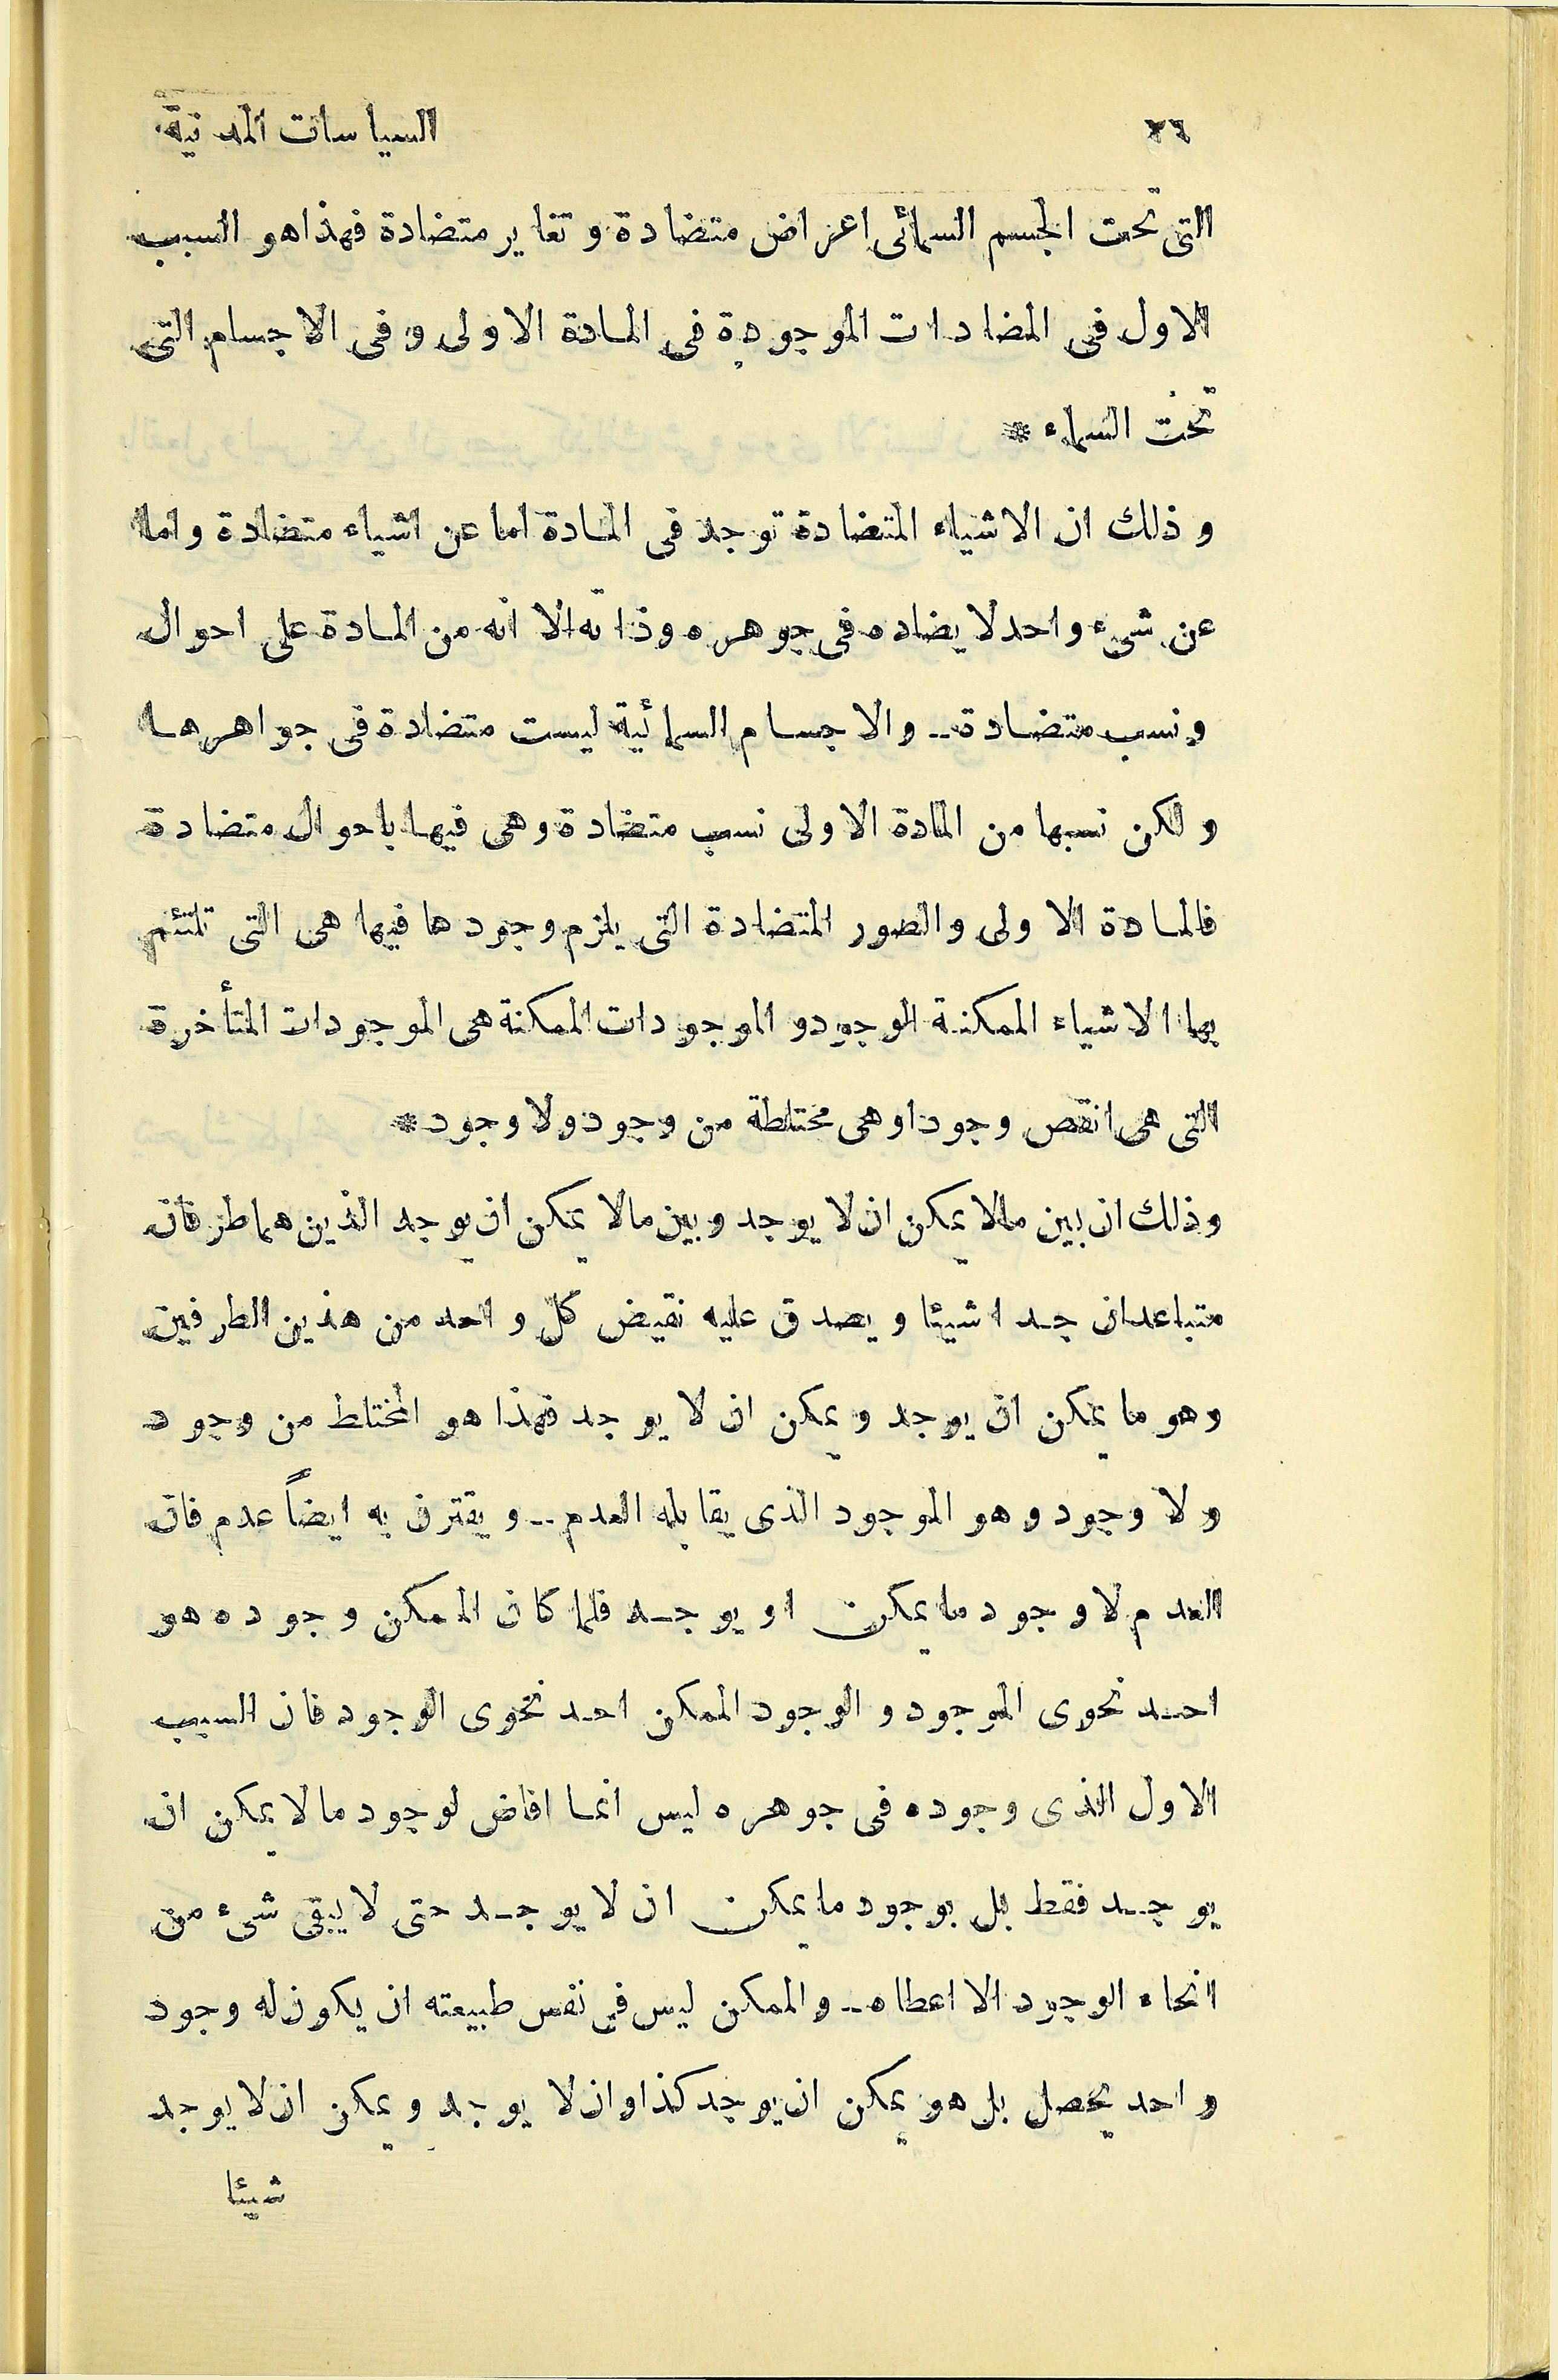 ٢٦ السياسات المدنية
التى تحت الجسم السمائى اعراض متضادة و تغاير متضادة فهذا هو السبب
الاول فى المضادات الموجودة فى المادة الاولى وفى الاجسام التى
تحت السماء *
و ذلك ان الاشياء المتضادة توجد فى المادة اما عن اشياء متضادة واما
عن شىء واحد لا يضاده فى جوهره وذاته الا انه من المادة على احوال
ونسب متضادة -- والاجسام السمائية ليست متضادة فى جواهرها
ولكن نسبها من المادة الاولى نسب متضادة وهى فيها باحوال متضادة
فالمادة الاولى والصور المتضادة التى يلزم وجودها فيها هى التى تلتئم
بها الاشياء الممكنة الوجود و الموجودات الممكنة هى الموجودات المتأخرة
التى هى انقص وجودا وهى مختلطة من وجود ولا وجود *
وذلك ان بين مالا يمكن ان لا يوجد وبين مالا يمكن ان يوجد الذين هما طرفان
متباعدان جدا شيئا و يصدق عليه نقيض كل واحد من هذين الطرفين
وهو ما يمكن ان يوجد ويمكن ان لا يوجد فهذا هو المختلط من وجود
ولا وجود وهو الموجود الذى يقابله العدم -- ويقترن به ايضاً عدم فان
العدم لا وجود ما يمكن او يوجد فلما كان الممكن وجوده هو
احد نحوى الموجود و الوجود الممكن احد نحوى الوجود فان السبب
الاول الذى وجوده فى جوهره ليس انما افاض لوجود مالا يمكن ان
يوجد فقط بل بوجود ما يمكن ان لا يوجد حتى لا يبقى شىء من
انحاء الوجود الا اعطاه -- والممكن ليس فى نفس طبيعته ان يكون له وجود
واحد يحصل بل هو يمكن ان يوجد كذا وان لا يوجد و يمكن ان لا يوجد
شيئا